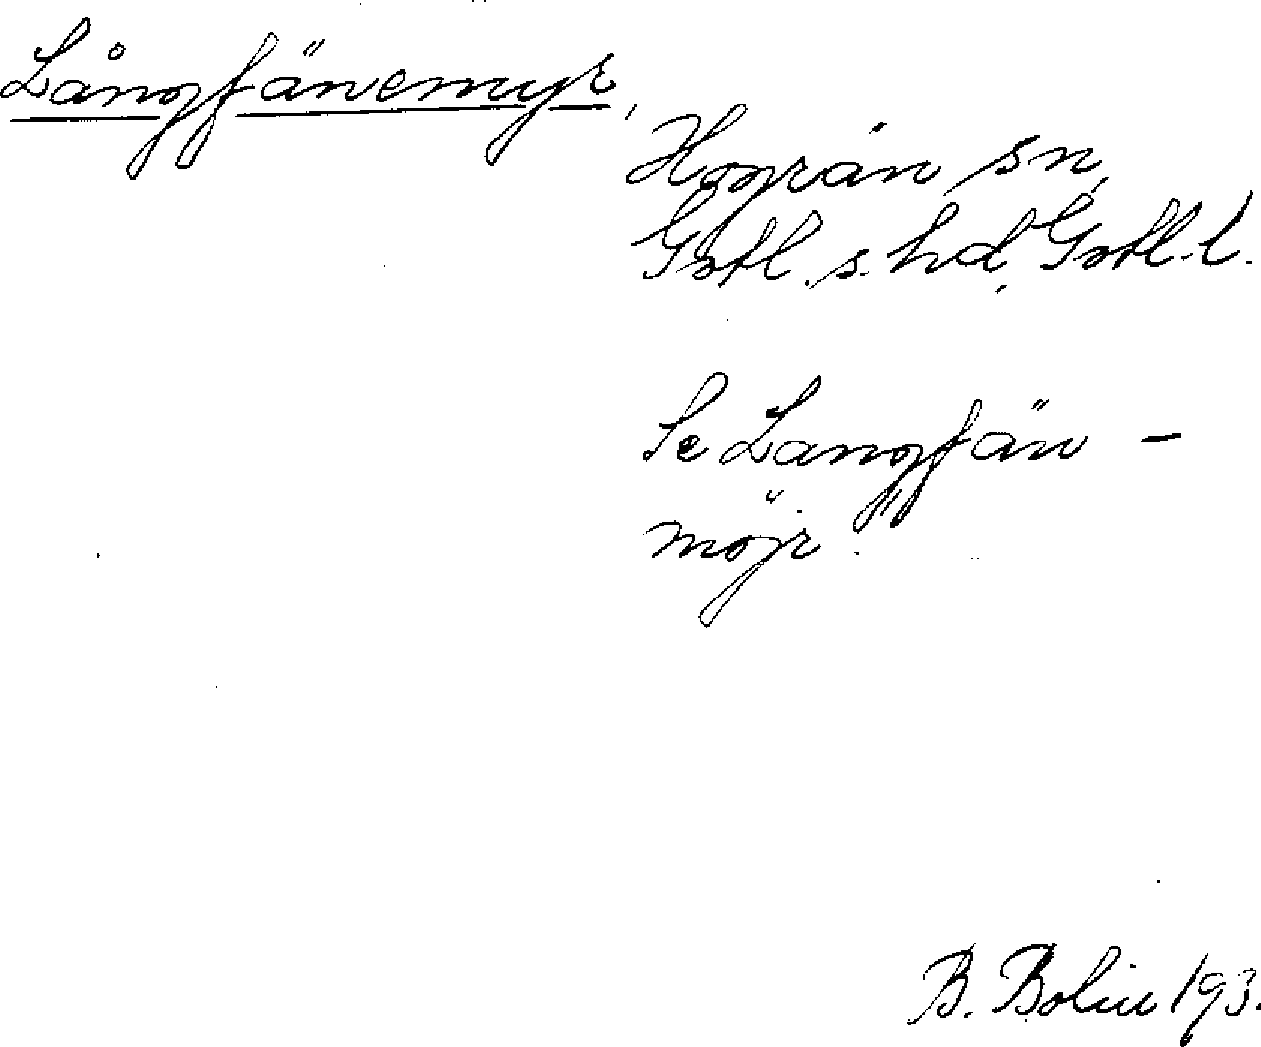 Långfänemyr,
Hogrän sn,
Gotl. s. hd, Gotl. l.
Se Langfän -
möjr.
B. Bolin 193.